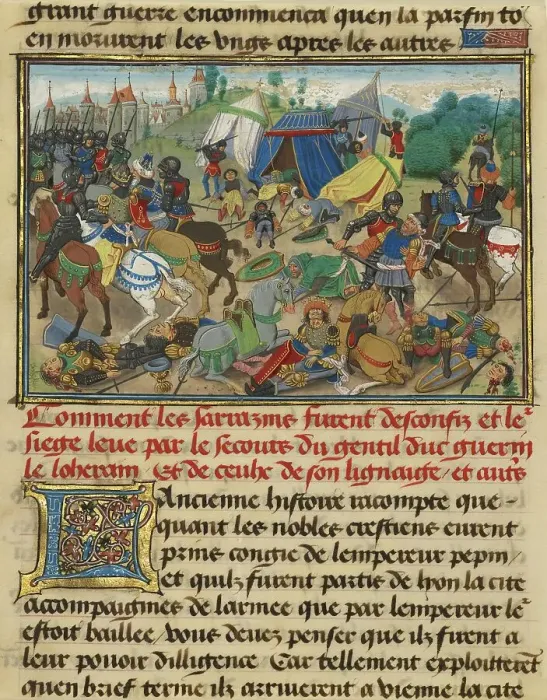 grant guerre encommenca quen la parfin to
en morurent les vngs apres les autres
Comment les sarrazins furent desconfiz et le
siege leue par le secours du gentil duc guerin
le loherain Et de ceulx de son lignaige et autres
L Ancienne histoire racompte que
quant les nobles crestiens eurent
prins congie de lempereur pepin
et quilz furent partis de lyon la cite
accompaignies de larmee que par lempereur le
estoit baillee vous deuez penser que ilz firent a
leur pouoir dilligence Car tellement exploitterent
quen brief terme ilz arriuerent a vienne la cite